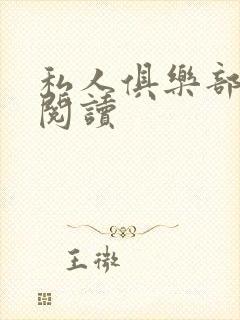 私人俱樂部
閱讀
王微